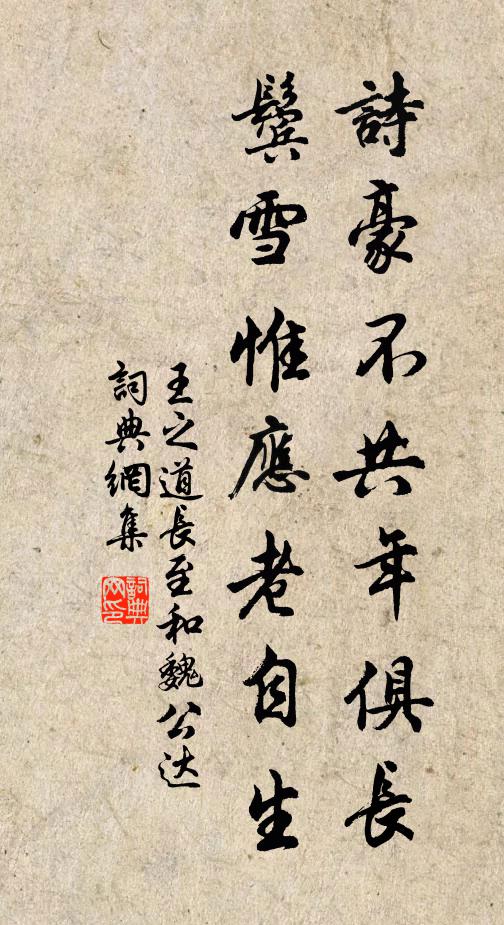 詩豪不共年俱長
鬢雪惟應老自生
王之道長至和魏公达
詞典網集
詞典
网印